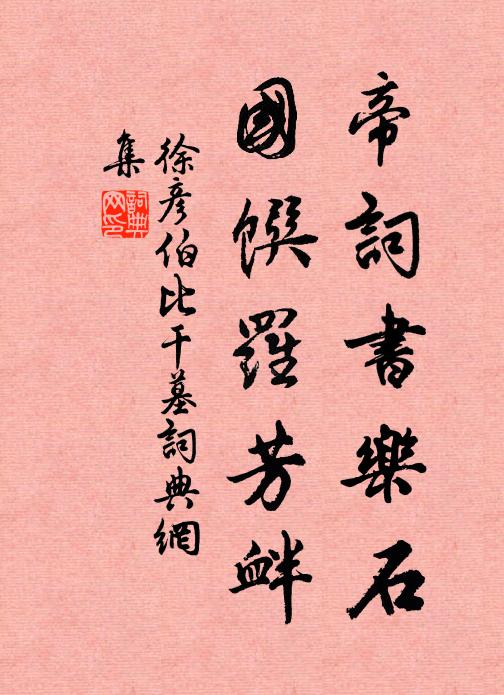 帝詞書樂石
國饌羅芳衅
徐彥伯比干墓詞典網
集
詞典
网印